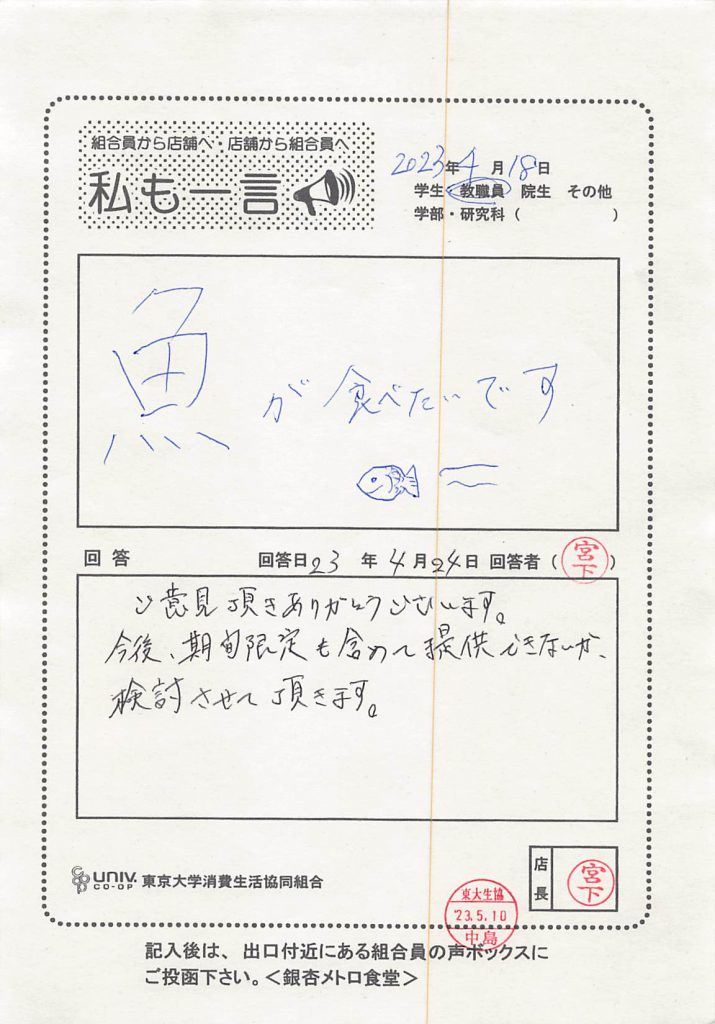 組合員から店舗へ・店舗から組合員へ
私も一言
2023年4月18日
学生・教職員 院生 その他
学部・研究科（ ）
魚が食べたいです
回答 回答日23年4月24日 回答者（宮下）
ご意見頂きありがとうございます。
今後、期旬限定も含めて提供できないか、
検討させて頂きます。
店長 宮下
UNIV. CO-OP 東京大学消費生活協同組合
東大生協
'23.5.10
中島
記入後は、出口付近にある組合員の声ボックスに
ご投函下さい。＜銀杏メトロ食堂＞